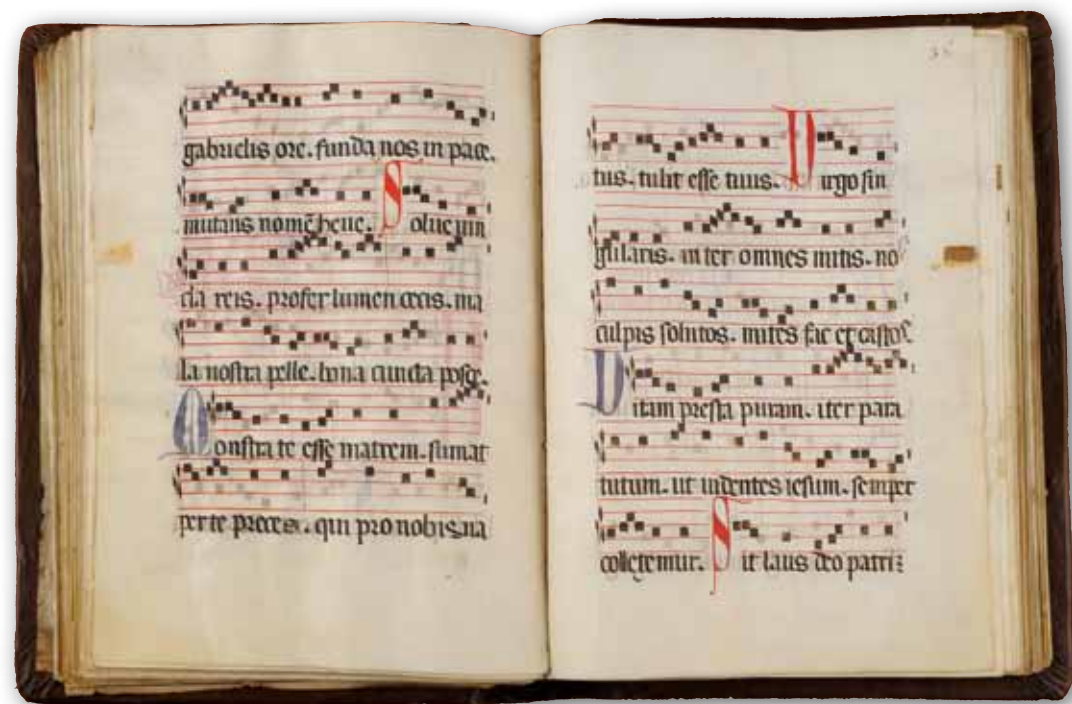 gabrielis ore. funda nos in pace.
mutans nomē heue. Solue uin
cla reis. profer lumen cecis. ma
la nostra pelle. bona cuncta posce.
Monstra te esse matrem. sumat
per te preces. qui pro nobis na
tus. tulit esse tuus. Virgo sin
gularis. inter omnes mitis. nos
culpis solutos. mites fac et castos
Vitam presta puram. iter para
tutum. ut uidentes iesum. semper
colletemur. Sit laus deo patri